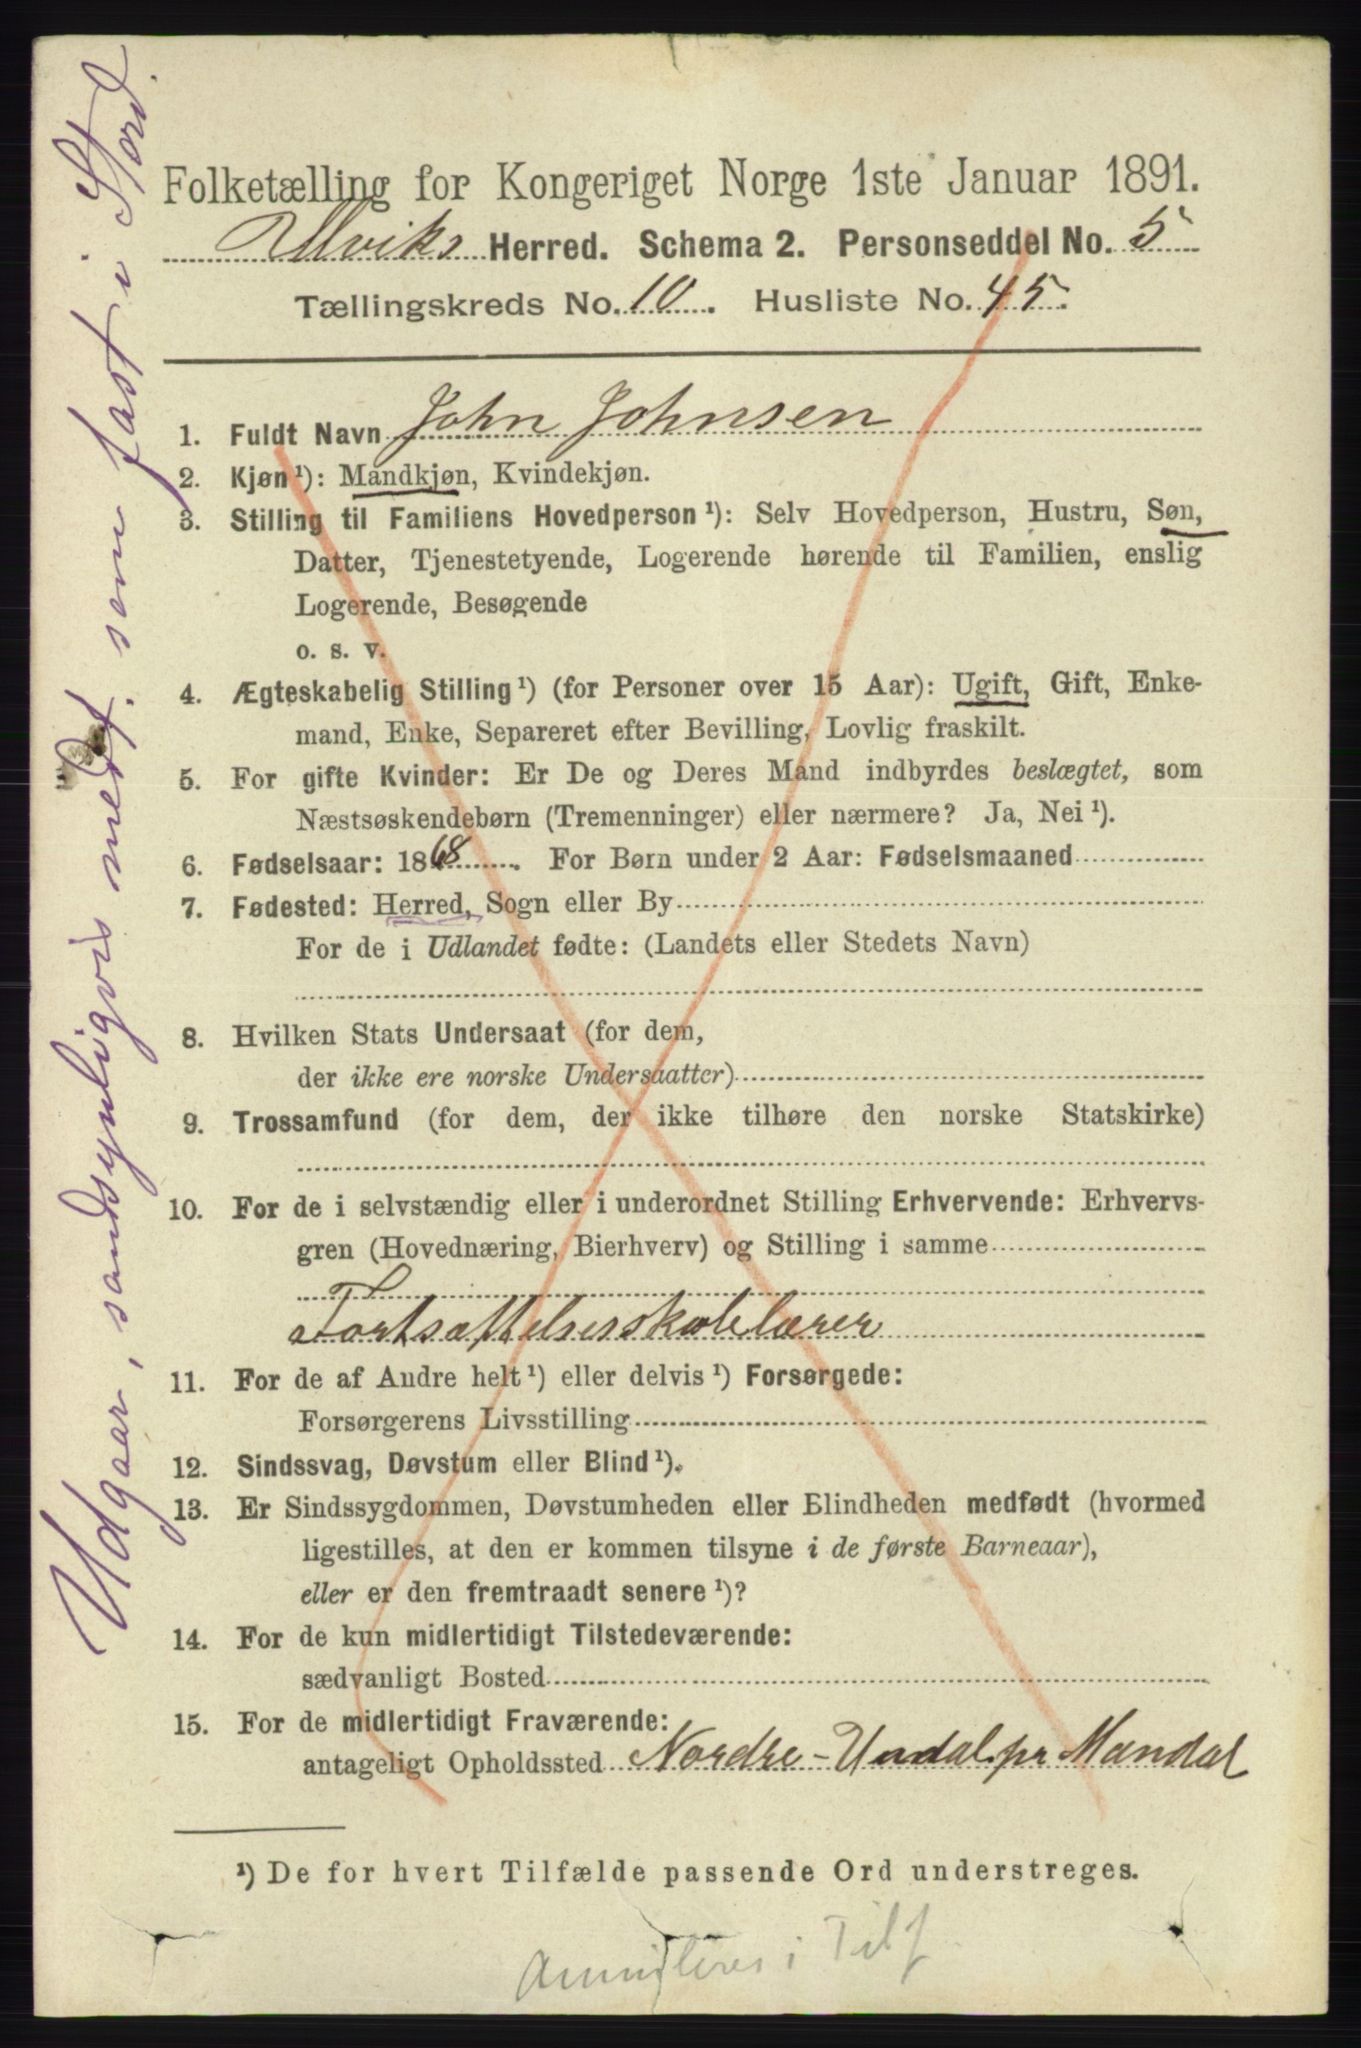 Folketælling for Kongeriget Norge 1ste Januar 1891.
Ulviks Herred. Schema 2. Personseddel No. 5
Tællingskreds No. 10. Husliste No. 45.
1. Fuldt Navn John Johnsen
2. Kjøn ¹): Mandkjøn, Kvindekjøn.
3. Stilling til Familiens Hovedperson ¹): Selv Hovedperson, Hustru, Søn,
Datter, Tjenestetyende, Logerende hørende til Familien, enslig
Logerende, Besøgende
o. s. v.
4. Ægteskabelig Stilling ¹) (for Personer over 15 Aar): Ugift, Gift, Enke-
mand, Enke, Separeret efter Bevilling, Lovlig fraskilt.
5. For gifte Kvinder: Er De og Deres Mand indbyrdes beslægtet, som
Næstsøskendebørn (Tremenninger) eller nærmere? Ja, Nei ¹).
6. Fødselsaar: 1868. For Børn under 2 Aar: Fødselsmaaned
7. Fødested: Herred, Sogn eller By
For de i Udlandet fødte: (Landets eller Stedets Navn)
8. Hvilken Stats Undersaat (for dem,
der ikke ere norske Undersaatter)
9. Trossamfund (for dem, der ikke tilhøre den norske Statskirke)
10. For de i selvstændig eller i underordnet Stilling Erhvervende: Erhvervs-
gren (Hovednæring, Bierhverv) og Stilling i samme
Fortsættelsesskolelærer
11. For de af Andre helt ¹) eller delvis ¹) Forsørgede:
Forsørgerens Livsstilling
12. Sindssvag, Døvstum eller Blind ¹).
13. Er Sindssygdommen, Døvstumheden eller Blindheden medfødt (hvormed
ligestilles, at den er kommen tilsyne i de første Barneaar),
eller er den fremtraadt senere ¹)?
14. For de kun midlertidigt Tilstedeværende:
sædvanligt Bosted
15. For de midlertidigt Fraværende:
antageligt Opholdssted Nordre-Undal pr Mandal
¹) De for hvert Tilfælde passende Ord understreges.
i Tilf
Udgaar, sandsynligvis medt. som fast i Stord.